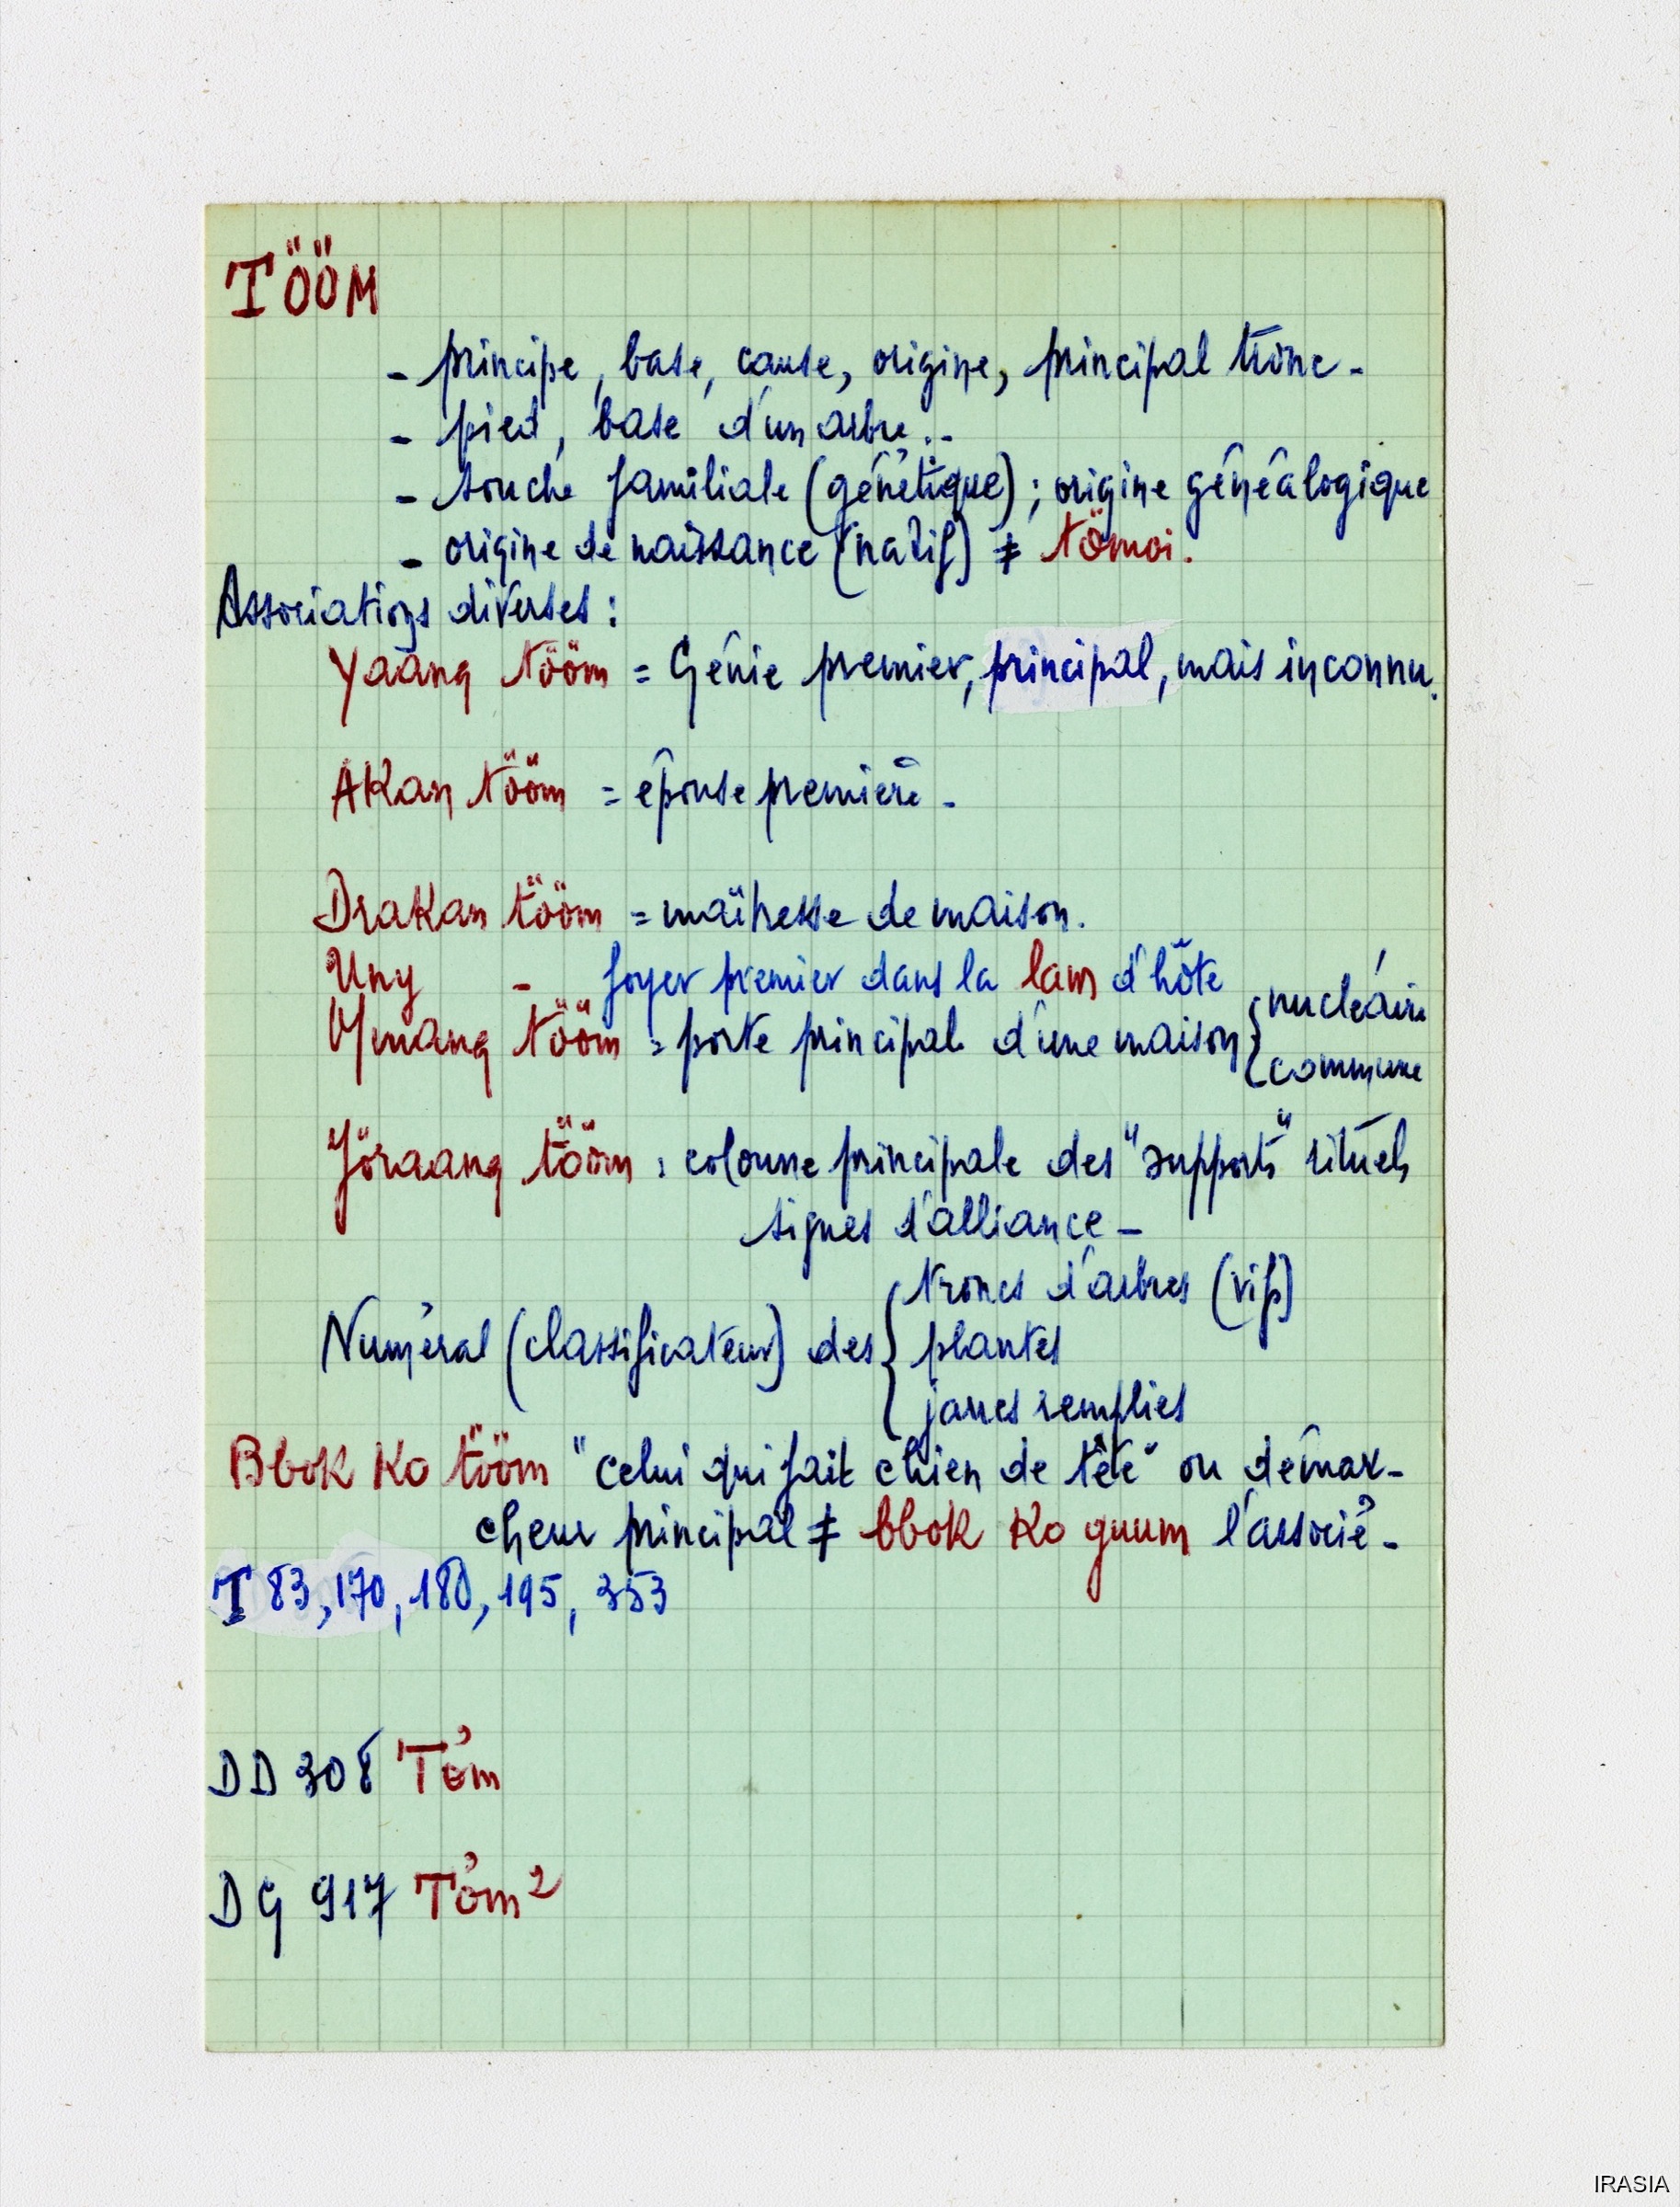 TÖÖM
- principe, base, cause, origine, principal tronc -
- pied, base d'un arbre..
- souche familiale (génétique); origine généalogique
- origine de naissance (natif) ≠ tömoi.
Associations diverses :
Yaang tööm = Génie premier, principal, mais inconnu.
AKan tööm = épouse première -
DraKan tööm = maîtresse de maison.
Uny - foyer premier dans la lam d'hôte
Mmang tööm = porte principal d'une maison { nucléaire
commune
Jöraang tööm : colonne principale des "supports" rituels
signes d'alliance -
Numéral (classificateur) des { troncs d'arbres (vifs)
plantes
jarres remplies
BboK Ko tööm "celui qui fait chien de tête" ou démar-
cheur principal ≠ bboK Ko guum l'associé -
T 83, 170, 180, 195, 353
DD 308 Tơm
DG 917 Tơm²
IRASIA